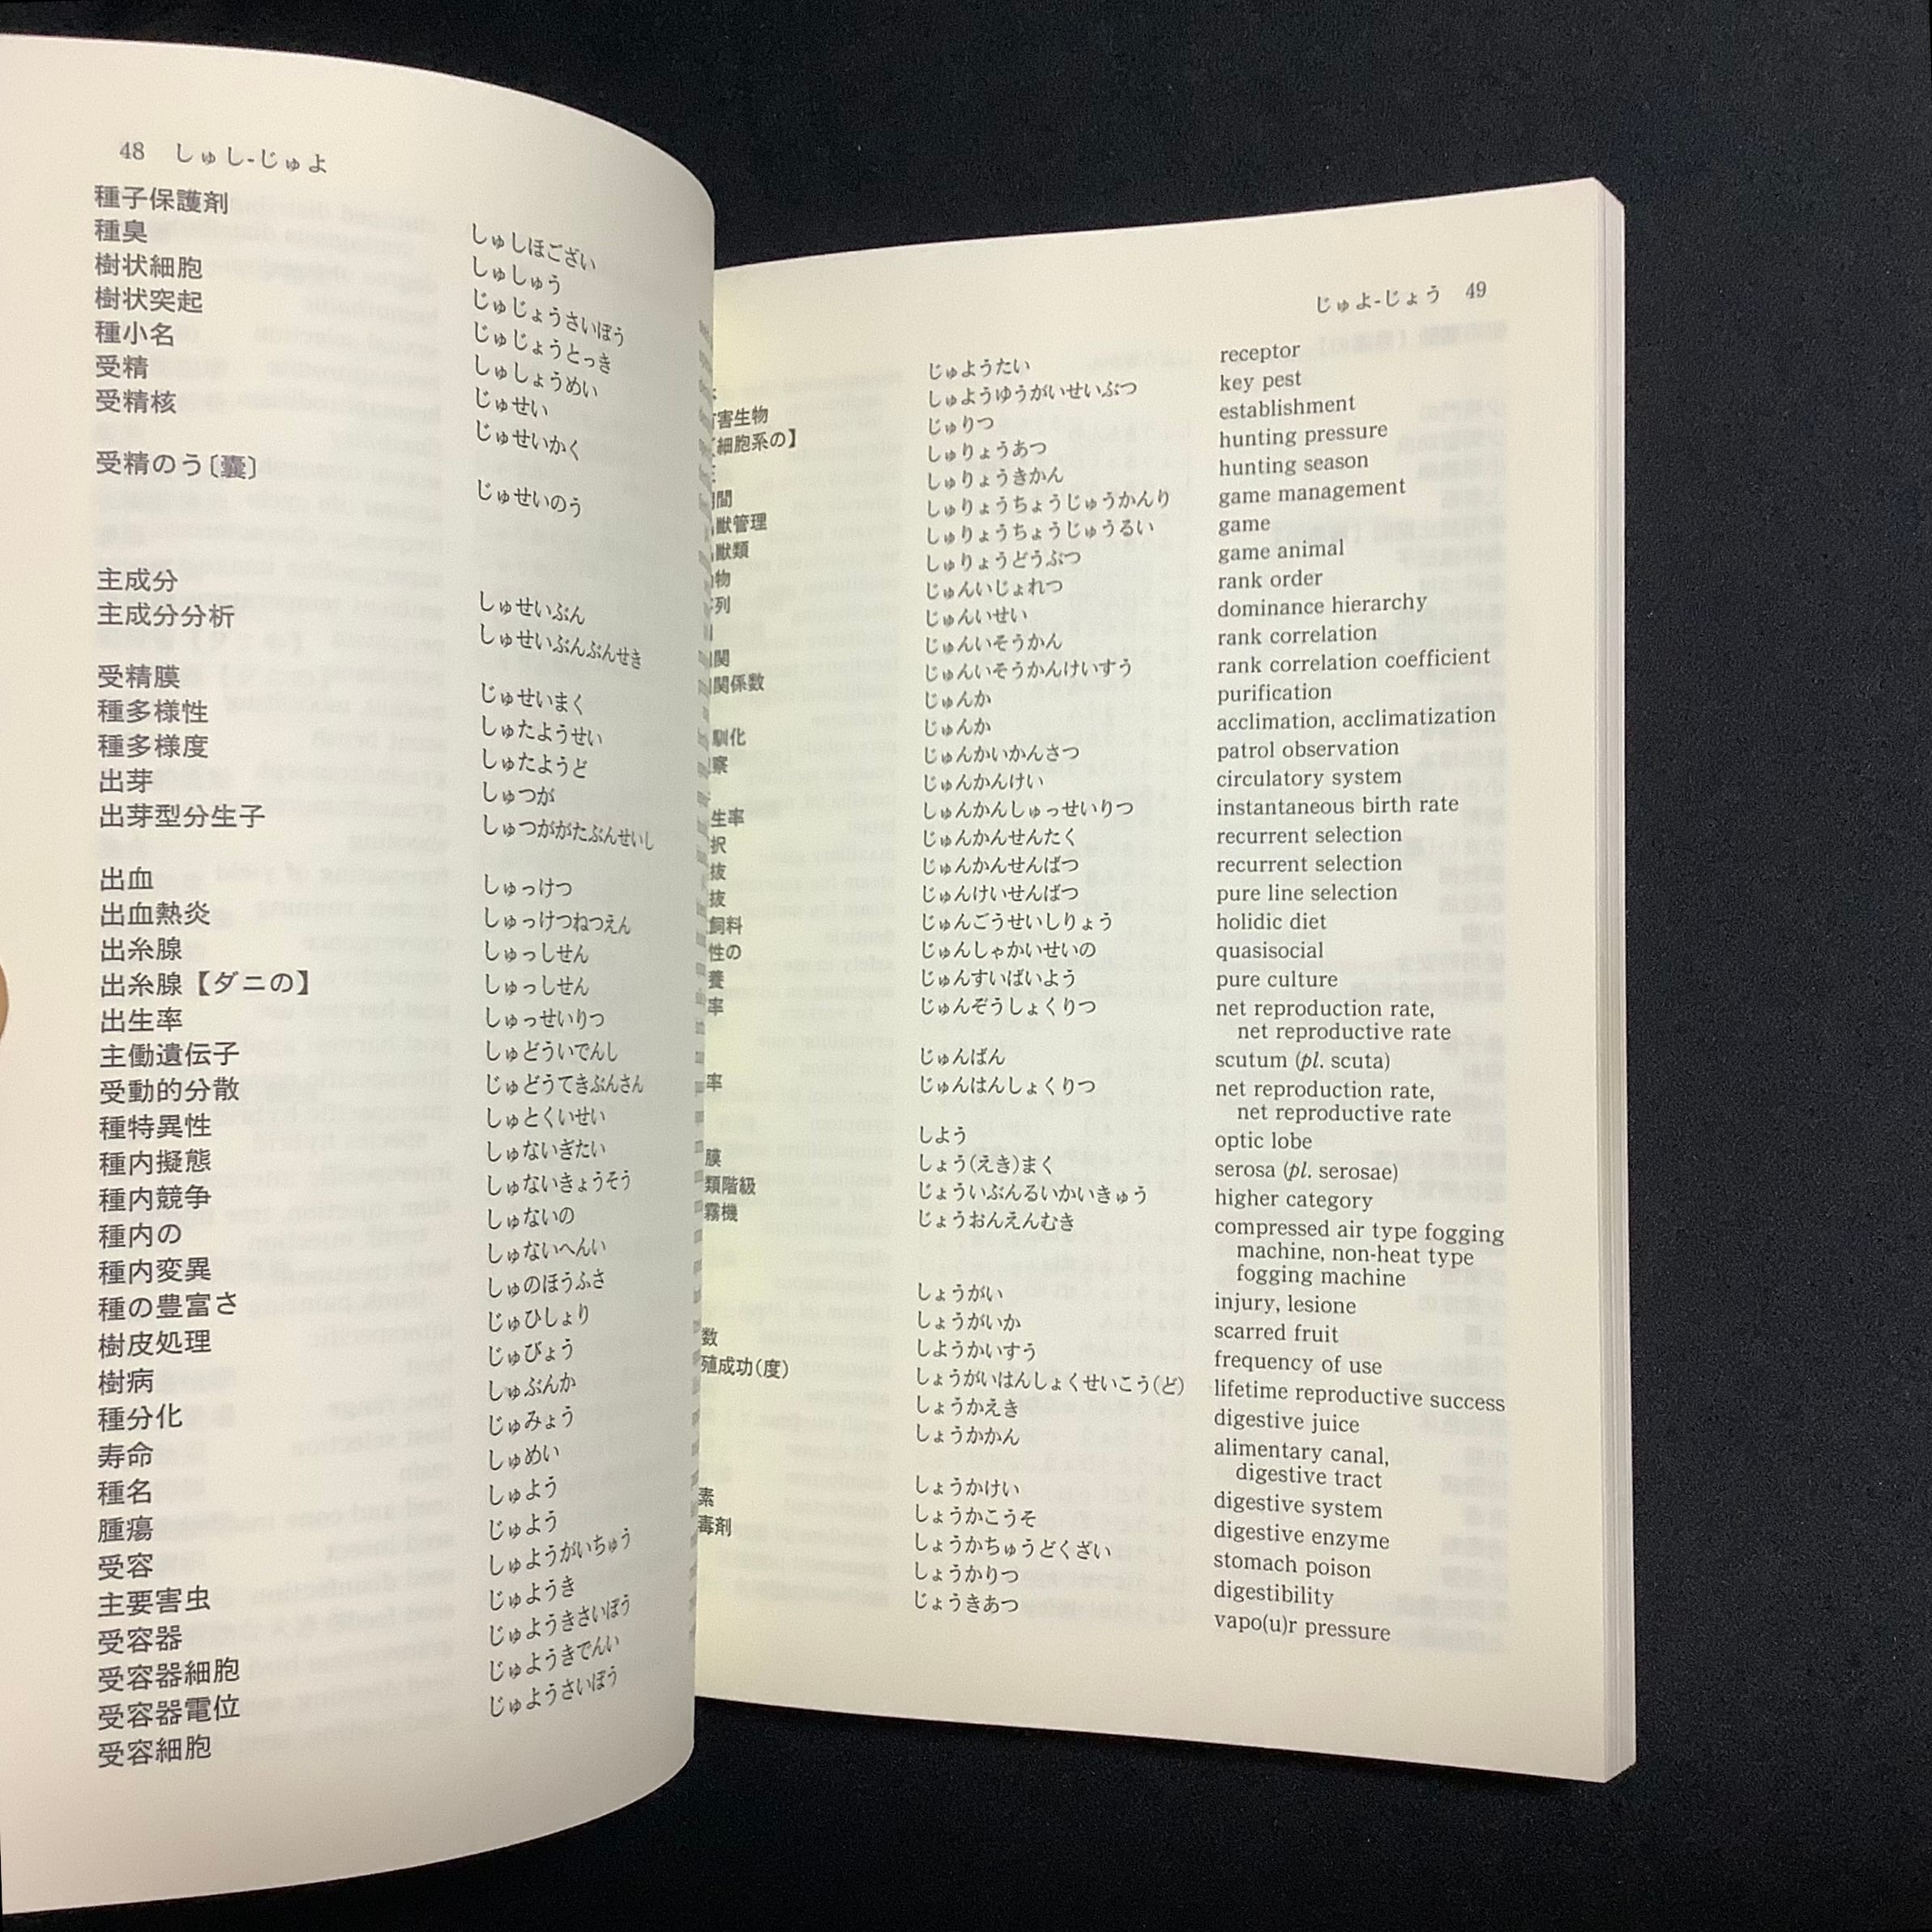 48 しゅし-じゅよ
種子保護剤 しゅしほござい
種臭 しゅしゅう
樹状細胞 じゅじょうさいぼう
樹状突起 じゅじょうとっき
種小名 しゅしょうめい
受精 じゅせい
受精核 じゅせいかく
受精のう〔嚢〕 じゅせいのう
主成分 しゅせいぶん
主成分分析 しゅせいぶんぶんせき
受精膜 じゅせいまく
種多様性 しゅたようせい
種多様度 しゅたようど
出芽 しゅつが
出芽型分生子 しゅつががたぶんせいし
出血 しゅっけつ
出血熱炎 しゅっけつねつえん
出糸腺 しゅっしせん
出糸腺【ダニの】 しゅっしせん
出生率 しゅっせいりつ
主働遺伝子 しゅどういでんし
受動的分散 じゅどうてきぶんさん
種特異性 しゅとくいせい
種内擬態 しゅないぎたい
種内競争 しゅないきょうそう
種内の しゅないの
種内変異 しゅないへんい
種の豊富さ しゅのほうふさ
樹皮処理 じゅひしょり
樹病 じゅびょう
種分化 しゅぶんか
寿命 じゅみょう
種名 しゅめい
腫瘍 しゅよう
受容 じゅよう
主要害虫 しゅようがいちゅう
受容器 じゅようき
受容器細胞 じゅようきさいぼう
受容器電位 じゅようきでんい
受容細胞 じゅようさいぼう
じゅよ-じょう 49
じゅようたい receptor
害生物 しゅようゆうがいせいぶつ key pest
【細胞系の】 じゅりつ establishment
しゅりょうあつ hunting pressure
間 しゅりょうきかん hunting season
獣管理 しゅりょうちょうじゅうかんり game management
獣類 しゅりょうちょうじゅうるい game
物 しゅりょうどうぶつ game animal
列 じゅんいじょれつ rank order
じゅんいせい dominance hierarchy
関 じゅんいそうかん rank correlation
関係数 じゅんいそうかんけいすう rank correlation coefficient
じゅんか purification
馴化 じゅんか acclimation, acclimatization
察 じゅんかいかんさつ patrol observation
じゅんかんけい circulatory system
生率 しゅんかんしゅっせいりつ instantaneous birth rate
択 じゅんかんせんたく recurrent selection
抜 じゅんかんせんばつ recurrent selection
抜 じゅんけいせんばつ pure line selection
飼料 じゅんごうせいしりょう holidic diet
性の じゅんしゃかいせいの quasisocial
養 じゅんすいばいよう pure culture
率 じゅんぞうしょくりつ net reproduction rate,
net reproductive rate
じゅんばん scutum (pl. scuta)
率 じゅんはんしょくりつ net reproduction rate,
net reproductive rate
しよう optic lobe
膜 しょう(えき)まく serosa (pl. serosae)
類階級 じょういぶんるいかいきゅう higher category
霧機 じょうおんえんむき compressed air type fogging
machine, non-heat type
fogging machine
しょうがい injury, lesione
しょうがいか scarred fruit
数 しようかいすう frequency of use
殖成功(度) しょうがいはんしょくせいこう(ど) lifetime reproductive success
しょうかえき digestive juice
しょうかかん alimentary canal,
digestive tract
しょうかけい digestive system
素 しょうかこうそ digestive enzyme
毒剤 しょうかちゅうどくざい stomach poison
しょうかりつ digestibility
じょうきあつ vapo(u)r pressure